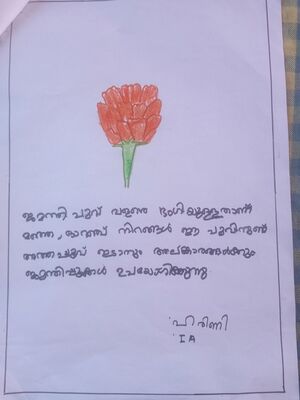 ജമന്തി പൂവ് വളരെ ഭംഗിയുള്ളതാണ്
മഞ്ഞ, ഓറഞ്ച് നിറങ്ങൾ ഈ പൂവിനുണ്ട്
അത്തപൂവ് ഇടാനും അലങ്കാരങ്ങൾക്കും
ജമന്തിപ്പൂക്കൾ ഉപയോഗിക്കുന്നു.
ഹിരിണി
I A